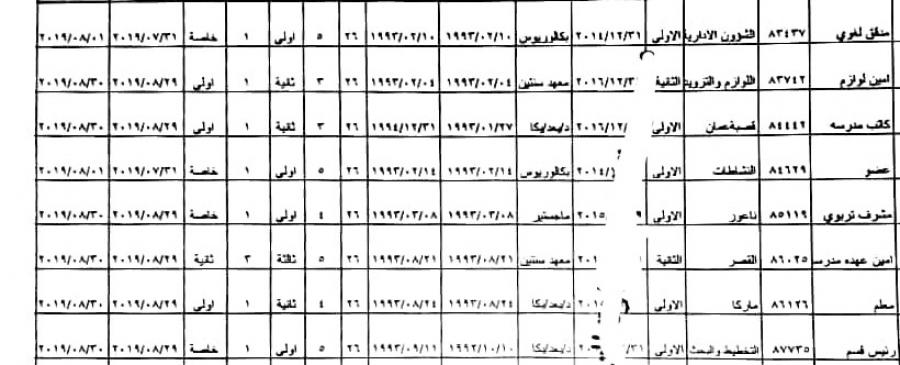 مدقق لغوي ٨٣٤٣٧ الشؤون الادارية الاولى ٢٠١٤/١٢/٣١ بكالوريوس ١٩٩٣/٠٢/١٠ ١٩٩٣/٠٢/١٠ ٢٦ ٥ اولى ١ خاصة ٢٠١٩/٠٧/٣١ ٢٠١٩/٠٨/٠١
امين لوازم ٨٣٧٤٢ اللوازم والتزويد الثانية ٢٠١٦/١٢/٣ معهد سنتين ١٩٩٣/٠٢/٠٤ ١٩٩٣/٠٢/٠٤ ٢٦ ٣ ثانية ١ اولى ٢٠١٩/٠٨/٢٩ ٢٠١٩/٠٨/٣٠
كاتب مدرسه ٨٤٤٤٢ قصبة عمان الاولى ٢٠١٦/١٢/ د/بعد/بكا ١٩٩٣/٠١/٢٧ ١٩٩٤/١٢/٣١ ٢٦ ٣ ثانية ١ اولى ٢٠١٩/٠٨/٢٩ ٢٠١٩/٠٨/٣٠
عضو ٨٤٦٢٩ النشاطات الاولى ٢٠١٤/ بكالوريوس ١٩٩٣/٠٢/١٤ ١٩٩٣/٠٢/١٤ ٢٦ ٥ اولى ١ خاصة ٢٠١٩/٠٧/٣١ ٢٠١٩/٠٨/٠١
مشرف تربوي ٨٥١١٩ ناعور الاولى ٢٠١٥ ماجستير ١٩٩٣/٠٣/٠٨ ١٩٩٣/٠٣/٠٨ ٢٦ ٤ اولى ١ خاصة ٢٠١٩/٠٨/٢٩ ٢٠١٩/٠٨/٣٠
امين عهده مدرس ٨٦٠٢٥ القصر الثانية معهد سنتين ١٩٩٣/٠٨/٢١ ١٩٩٣/٠٨/٢١ ٢٦ ٥ ثالثة ٣ ثانية ٢٠١٩/٠٨/٢٩ ٢٠١٩/٠٨/٣٠
معلم ٨٦١٢٦ ماركا الاولى د/بعد/بكا ١٩٩٣/٠٨/٢٤ ١٩٩٣/٠٨/٢٤ ٢٦ ٤ ثانية ١ اولى ٢٠١٩/٠٨/٢٩ ٢٠١٩/٠٨/٣٠
رئيس قسم ٨٧٧٣٥ التخطيط والبحث الاولى د/بعد/بكا ١٩٩٢/١٠/١٠ ١٩٩٣/٠٩/١١ ٢٦ ٥ اولى ١ خاصة ٢٠١٩/٠٨/٢٩ ٢٠١٩/٠٨/٣٠